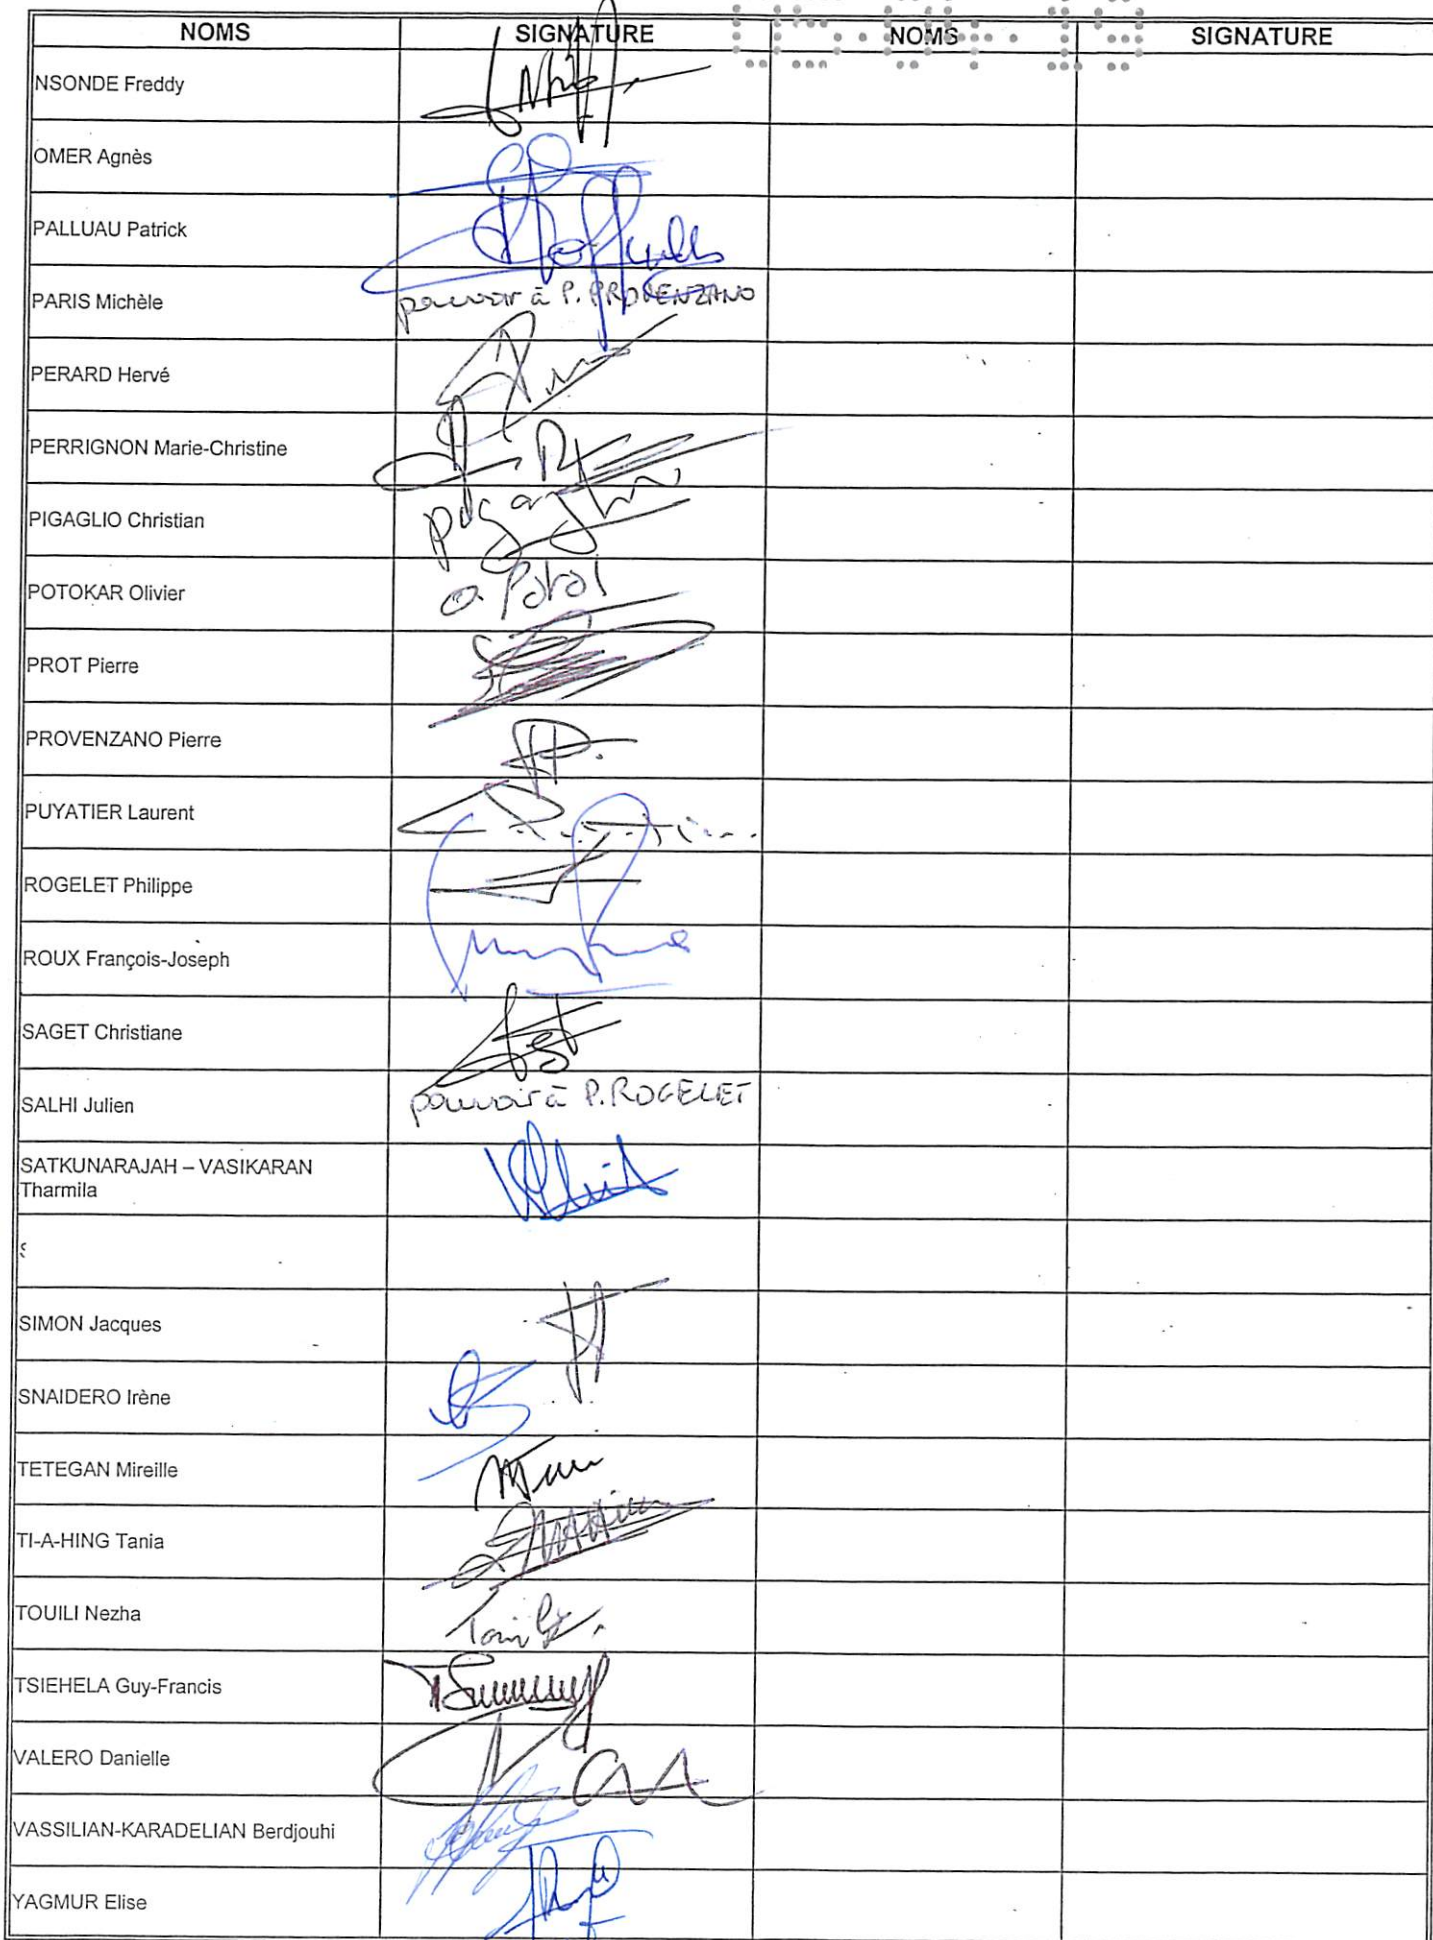 NOMS SIGNATURE NOMS SIGNATURE
NSONDE Freddy
OMER Agnès
PALLUAU Patrick
PARIS Michèle pouvoir à P. PROVENZANO
PERARD Hervé
PERRIGNON Marie-Christine
PIGAGLIO Christian
POTOKAR Olivier
PROT Pierre
PROVENZANO Pierre
PUYATIER Laurent
ROGELET Philippe
ROUX François-Joseph
SAGET Christiane
SALHI Julien pouvoir à P. ROGELET
SATKUNARAJAH – VASIKARAN
Tharmila
SIMON Jacques
SNAIDERO Irène
TETEGAN Mireille
TI-A-HING Tania
TOUILI Nezha
TSIEHELA Guy-Francis
VALERO Danielle
VASSILIAN-KARADELIAN Berdjouhi
YAGMUR Elise